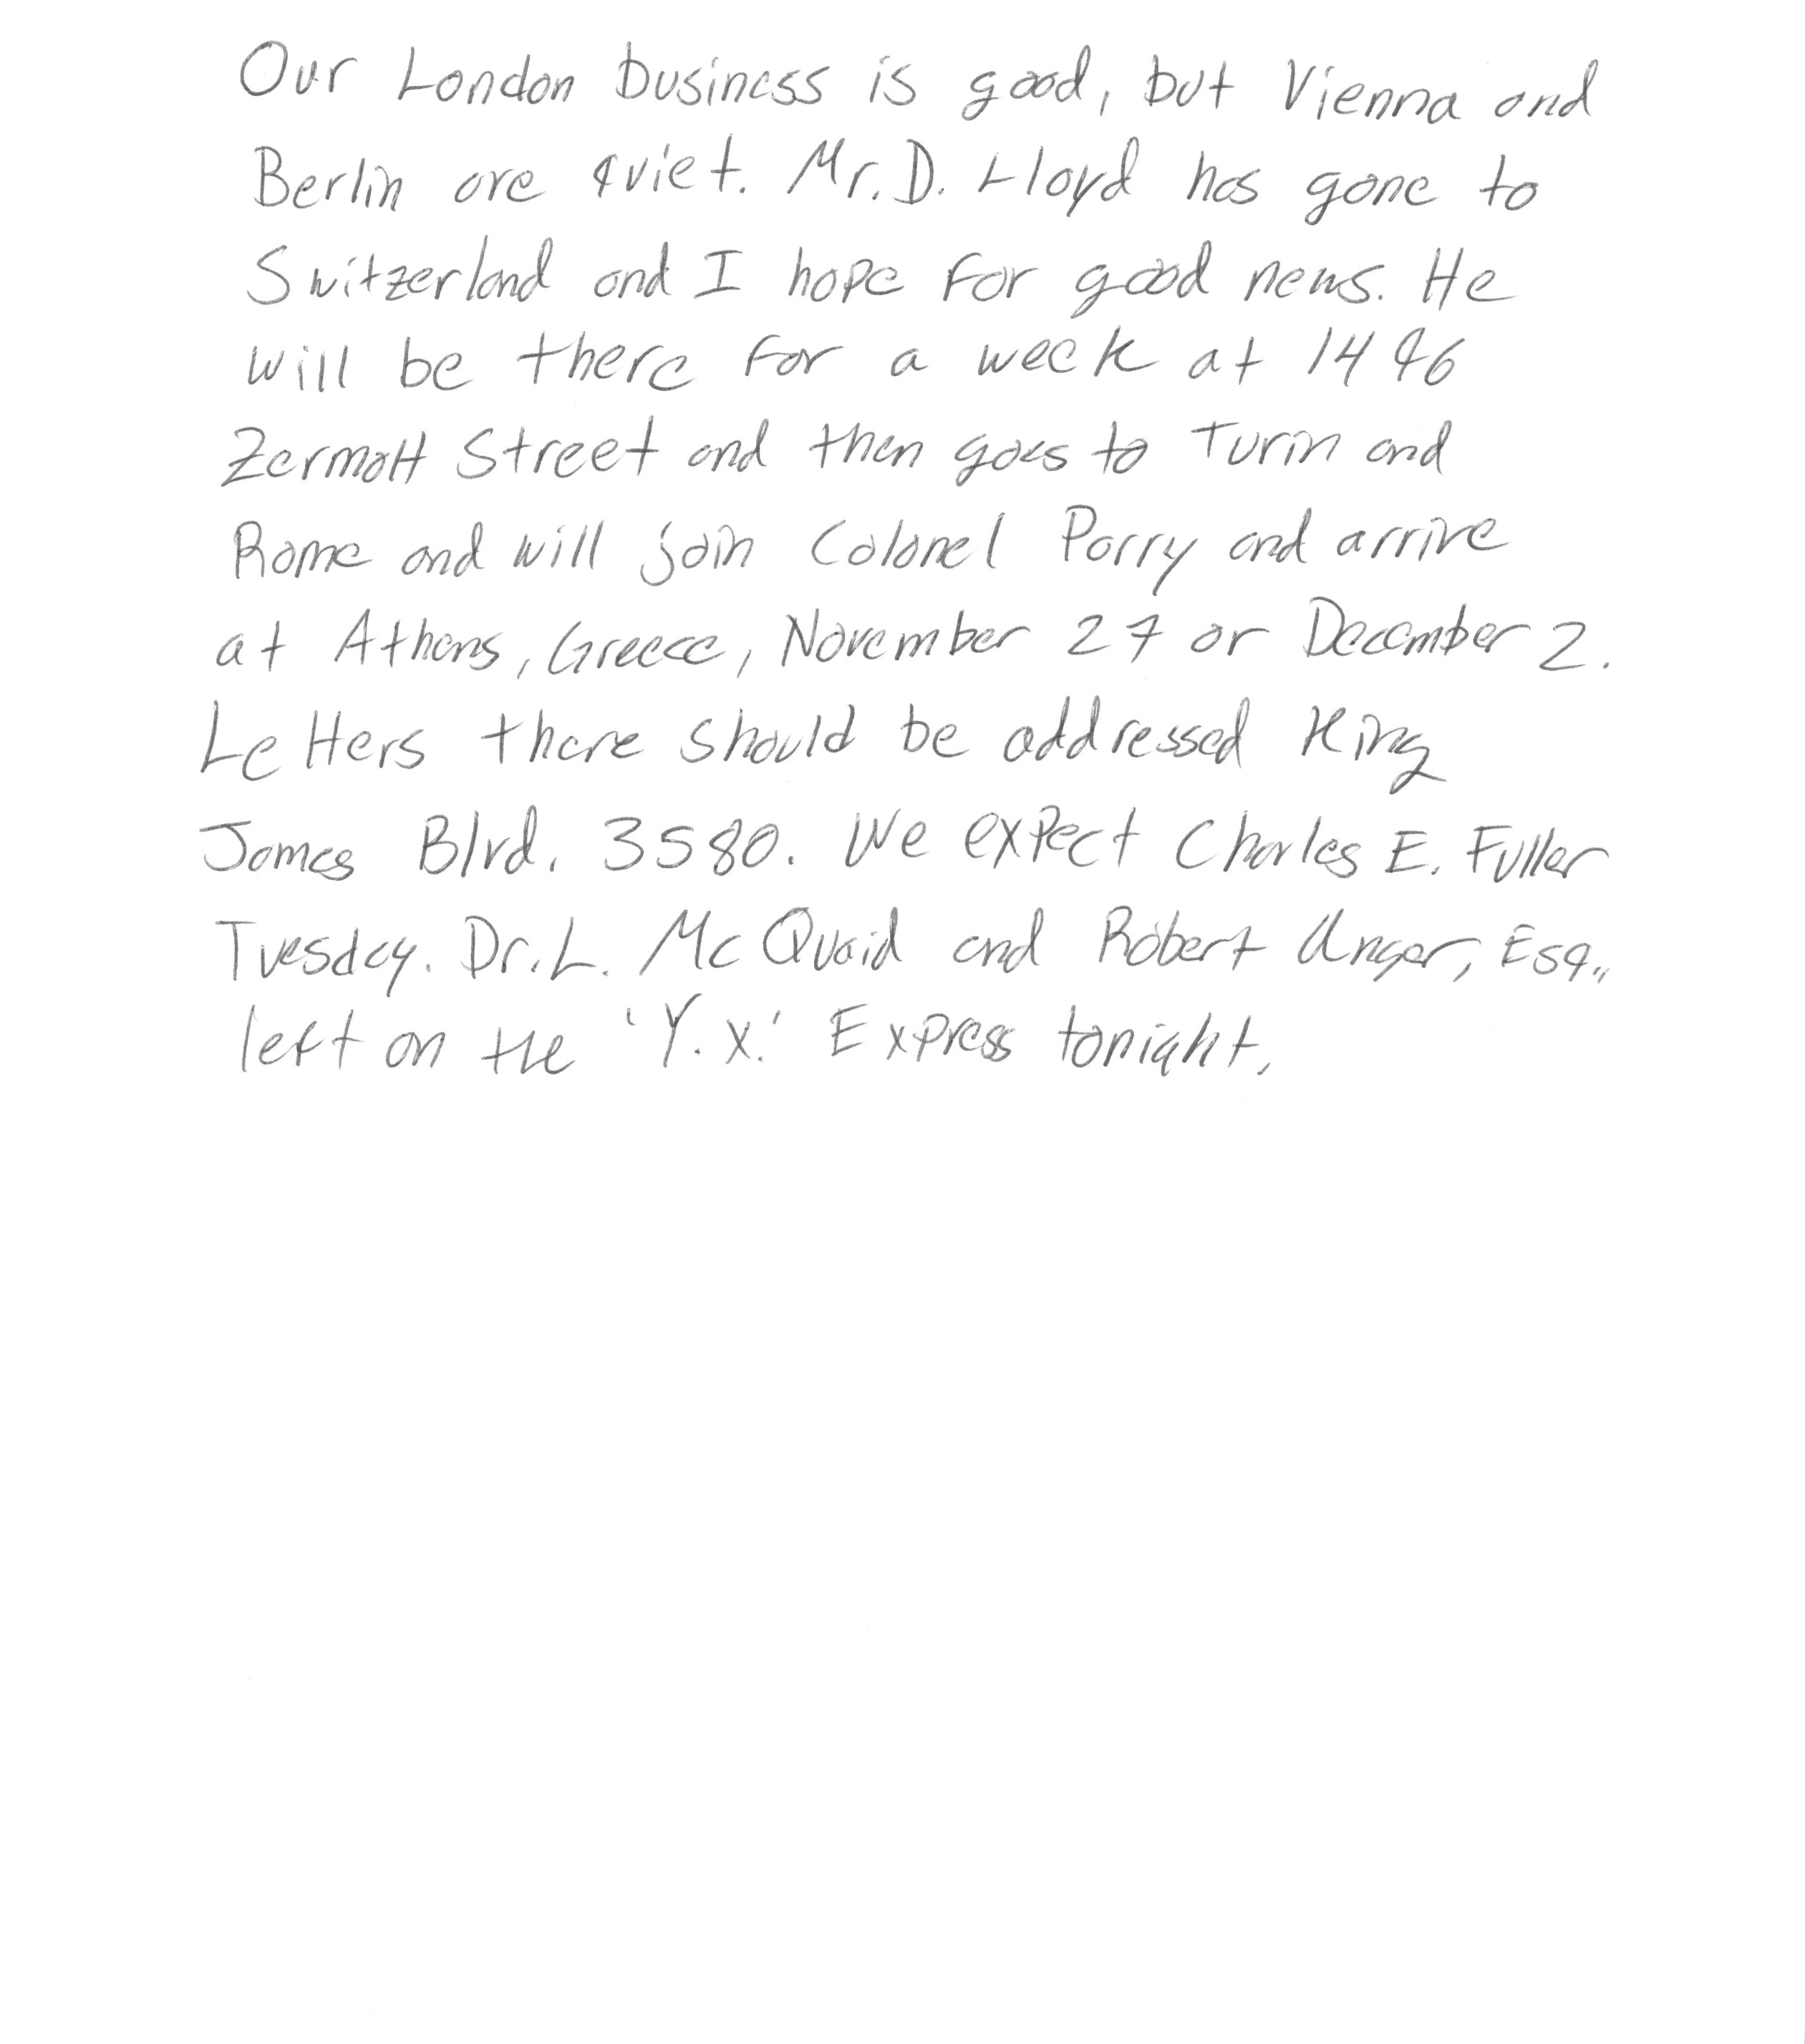 Our London business is good, but Vienna and
Berlin are quiet. Mr. D. Lloyd has gone to
Switzerland and I hope for good news. He
will be there for a week at 1496
Zermott Street and then goes to Turin and
Rome and will join Colonel Parry and arrive
at Athens, Greece, November 27 or December 2.
Letters there should be addressed King
James Blvd. 3580. We expect Charles E. Fuller
Tuesday. Dr. L. McQuaid and Robert Unger, Esq.,
left on the 'Y.X.' Express tonight.